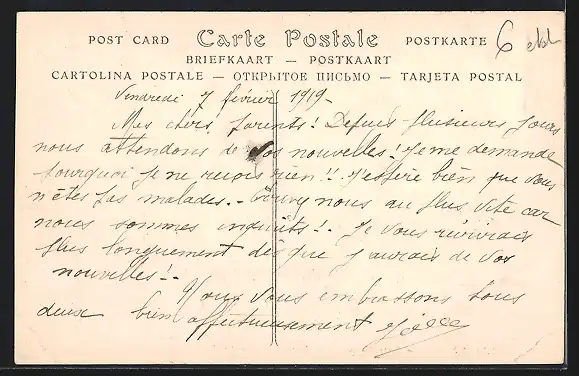 POST CARD Carte Postale POSTKARTE 6
BRIEFKAART — POSTKAART
CARTOLINA POSTALE — ОТКРЫТОЕ ПИСЬМО — TARJETA POSTAL
Vendredi 7 février 1919 -
Mes chers parents! Depuis plusieurs jours
nous attendons de vos nouvelles! Je me demande
pourquoi je ne reçois rien!! J'espère bien que vous
n'êtes pas malades. - Ecrivez nous au plus vite car
nous sommes inquiets! - Je vous récrirais
plus longuement dès que j'aurais de vos
nouvelles! -
Nous vous embrassons tous
deux bien affectueusement